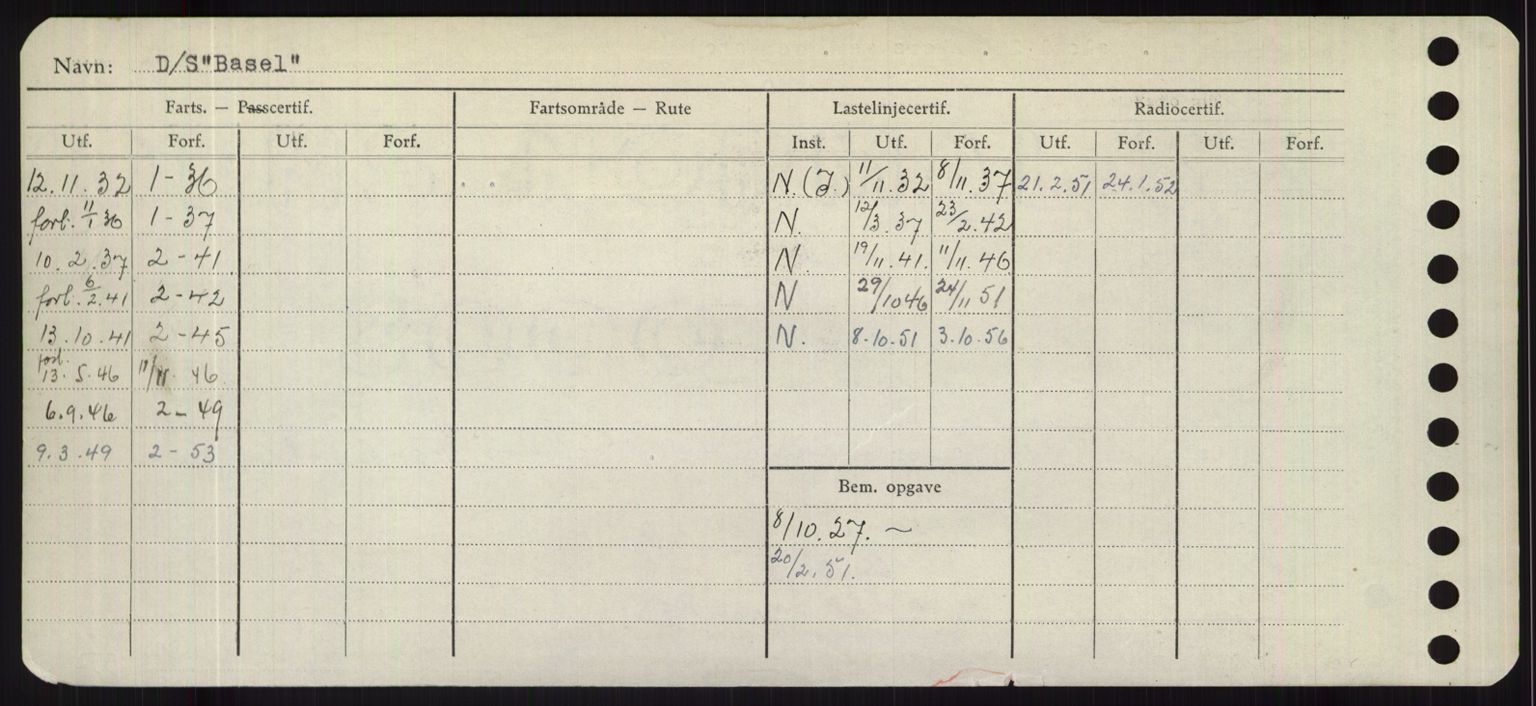 Navn: D/S"Basel"
Farts. — Passcertif. Fartsområde — Rute Lastelinjecertif. Radiocertif.
Utf. Forf. Utf. Forf. Inst. Utf. Forf. Utf. Forf. Utf. Forf.
12.11.32 1-36 N.(J.) 11/11.32 8/11.37 21.2.51 24.1.52
forl. 11/1 36 1-37 N. 12/3.37 23/2.42
10.2.37 2-41 N. 19/11.41. 11/11.46
forl. 6/2.41 2-42 N 29/10 46 24/11 51
13.10.41 2-45 N. 8.10.51 3.10.56
forl. 13.5.46 11/11.46
6.9.46 2-49
9.3.49 2-53
Bem. opgave
8/10.27. ~
20/2.51.